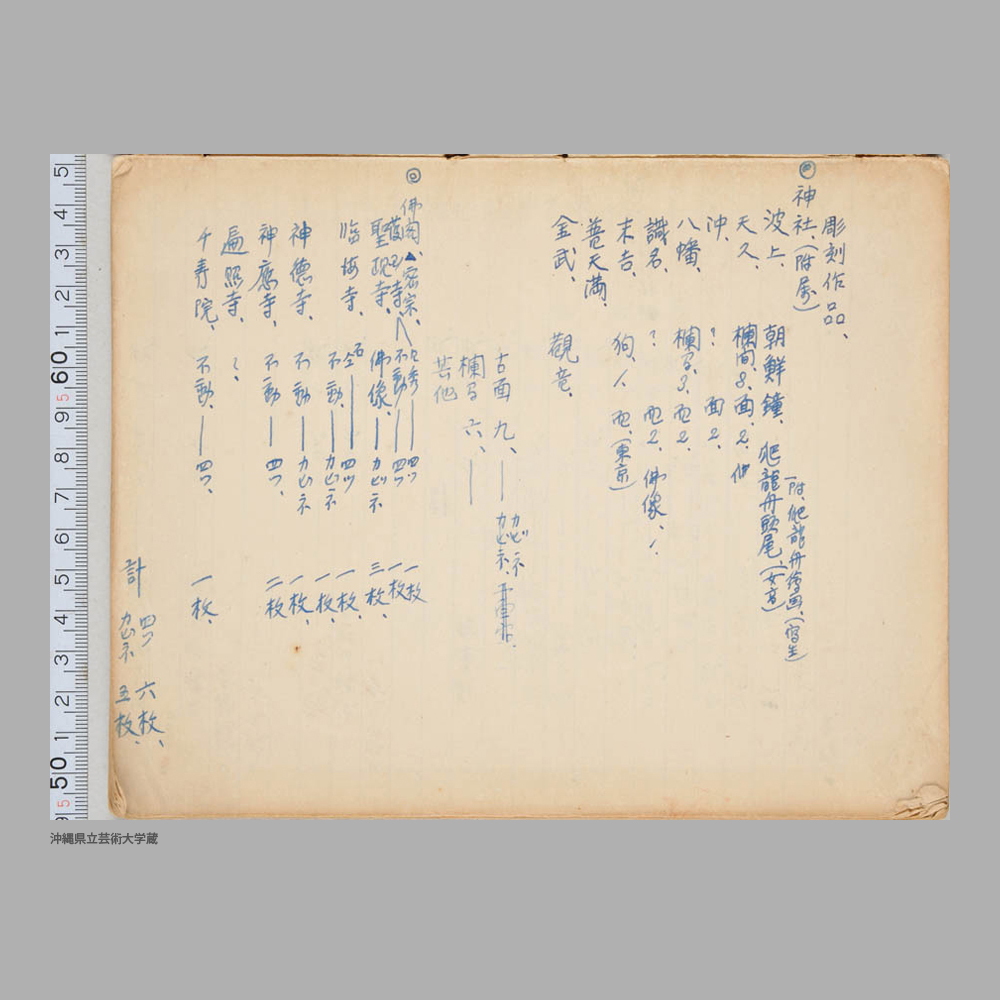 彫刻作品、
神社、(附属)
波上、 朝鮮鐘、 爬龍舟頭尾、
附、爬龍舟絵画、(写生)
天久、 欄間、8、面、2、他
沖、 ? 面2、
八幡、 欄間、3、面2、
識名、 ? 面2、佛像、1、
末吉、 狗、1 面、(東京)
普天満、
金武、 観音、
古面 九、— カビネ
カビネ、
欄間 六、—
其他
佛閣、▲密宗、
護国寺、 不動— 四ツ 一枚
聖現寺、 佛像、— カビネ 三枚、
臨海寺、 石 — 四ツ 一枚、
不動、— カビネ 一枚、
神徳寺、 不動— カビネ 一枚、
神應寺、 不動— 四ツ、 二枚
遍照寺、 ?、
千寿院、 不動、— 四ツ、 一枚、
計 四ツ 六枚、
カビネ 五枚、
5 4 3 2 1 60 9 8 7 6 5 4 3 2 1 50
沖縄県立芸術大学蔵